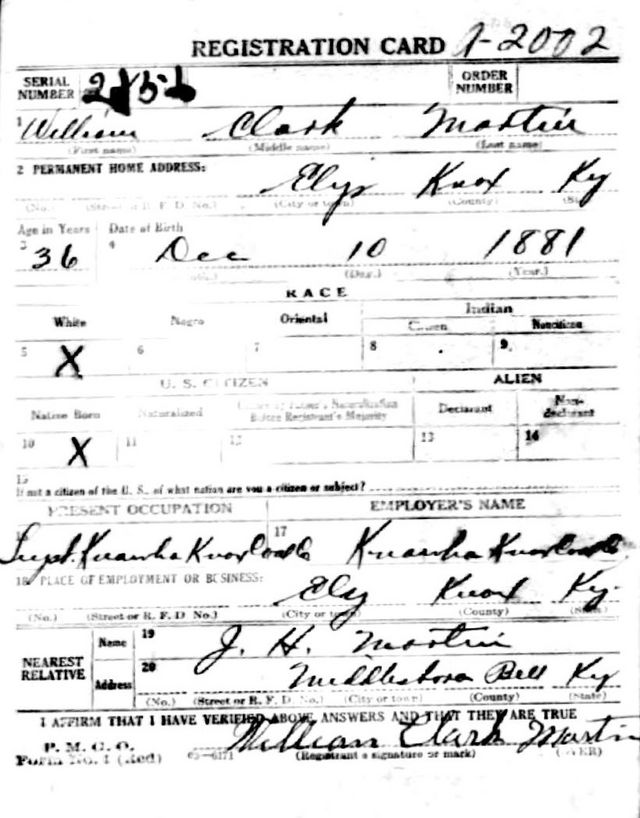 REGISTRATION CARD A-2002
SERIAL NUMBER ORDER NUMBER
1 William Clark Martin
(First name) (Middle name) (Last name)
2 PERMANENT HOME ADDRESS:
Elys Knox Ky
(No.) (Street or R. F. D. No.) (City or town) (County)
Age in Years Date of Birth
3 36 4 Dec 10 1881
(Day.) (Year.)
RACE
White Negro Oriental Indian
Citizen Noncitizen
5 X 6 7 8 9
U. S. CITIZEN ALIEN
Native Born Naturalized Citizen by Father's Naturalization Before Registrant's Majority Declarant Non-declarant
10 X 11 12 13 14
15
If not a citizen of the U. S., of what nation are you a citizen or subject?
PRESENT OCCUPATION EMPLOYER'S NAME
17
Supt. Kanawha Knox Coal Co Kanawha Knox Coal Co.
18 PLACE OF EMPLOYMENT OR BUSINESS:
Ely Knox Ky.
(No.) (Street or R. F. D. No.) (City or town) (County) (State)
NEAREST RELATIVE
Name 19 J. H. Martin
Address 20 Middlesboro Bell Ky
(No.) (Street or R. F. D. No.) (City or town) (County) (State)
I AFFIRM THAT I HAVE VERIFIED ABOVE ANSWERS AND THAT THEY ARE TRUE
P. M. G. O.
Form No. 1 (Red) 03-6171 William Clark Martin
(Registrant's signature or mark) (OVER)